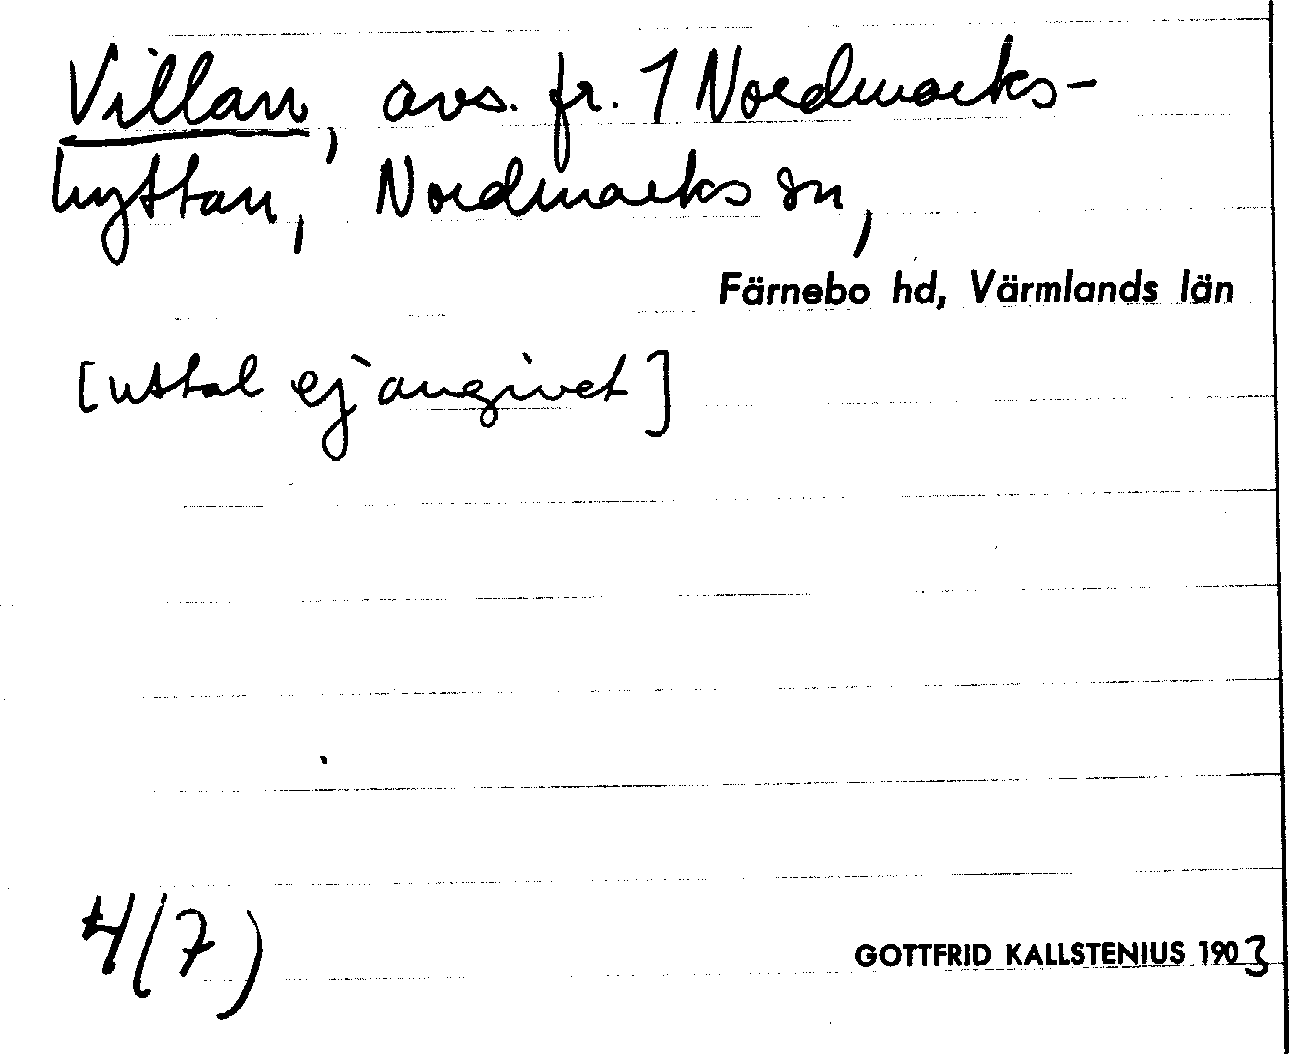 Villan, avs. fr. 1 Nordmarks-
hyttan, Nordmarks sn,
Färnebo hd, Värmlands län
[uttal ej angivet]
4(7)
GOTTFRID KALLSTENIUS 1903